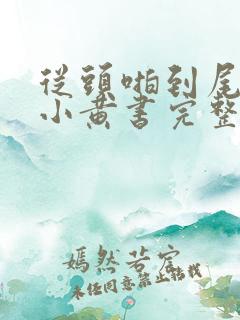 從頭啪到尾
小黃書完整
嫣然若宓
未任同意禁止轉載